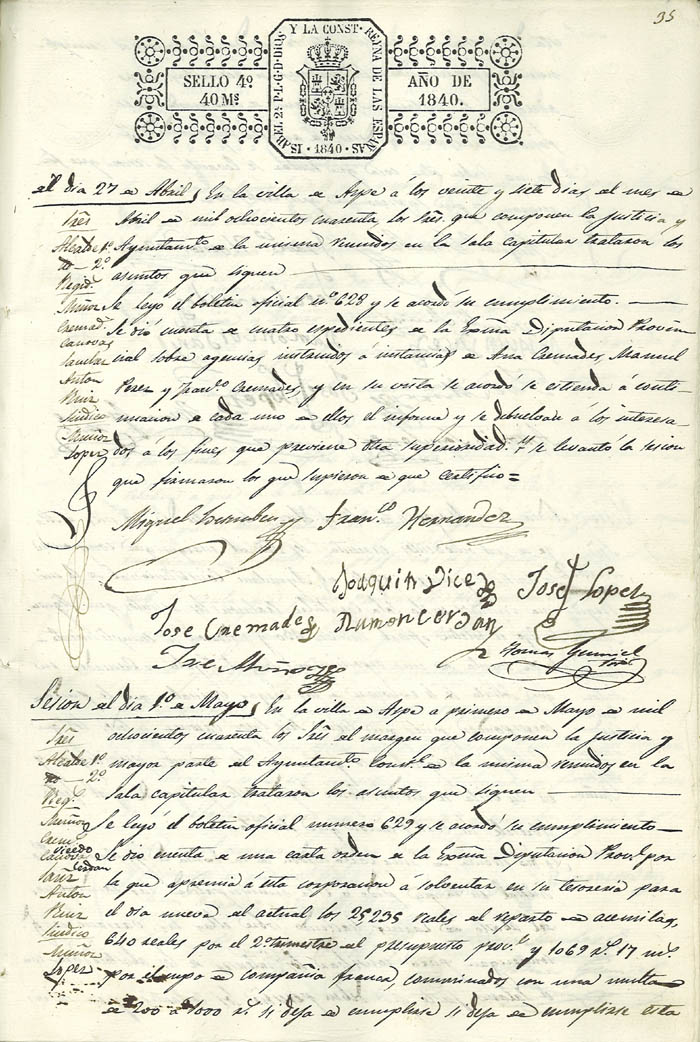 95
ISABEL 2ª P.L.G.D.DIOS Y LA CONST. REYNA DE LAS ESPAÑAS
SELLO 4º AÑO DE
40 Ms 1840.
· 1840 ·
el dia 27 de Abril, En la villa de Aspe á los veinte y siete dias del mes de
Sres Abril de mil ochocientos cuarenta los Sres. que componen la justicia y
Alcalde 1º Ayuntamto. de la misma reunidos en la sala capitular trataron los
2º asuntos que siguen
Regid.
Muñoz Se leyó el boletin oficial nº 628 y se acordó su cumplimiento.
Cremad. Se dió cuenta de cuatro espedientes de la Exma Diputacion Provin
Canovas cial sobre agencias instruidos á instancia de Ana Cremades Manuel
Anton Perez y Franco. Cremades, y en su vista se acordó se estienda á conti-
Ruiz nuacion de cada uno de ellos el informe y se debuelvan a los interesa-
Sindico
Muñoz
Lopez dos á los fines que previene dha superioridad. Y se levantó la sesion
que firmaron los que supieron de que certifico =
Miguel Franco. Hernandez
Joaquin Vicedo Josef Lopez
Jose Cremades Ramon Cerdan
Jose Muñoz Tomas
Sesion del dia 1º de Mayo, En la villa de Aspe a primero de Mayo de mil
Sres ochocientos cuarenta los Sres del margen que componen la justicia y
Alcalde 1º mayor parte del Ayuntamto Constl. de la misma reunidos en la
2º
Reg. sala capitular trataron los asuntos que siguen
Muñoz Se leyó el boletin oficial numero 629 y se acordó su cumplimiento
Crem
Vicedo
Canova Se dio cuenta de una carta orden de la Exma Diputacion Provl. por
Cerdan
la que apremia á esta corporacion á solventar en su tesoreria para
Anton
Ruiz el dia nueve del actual los 25,235 reales del reparto de acemilas,
Sindico
Muñoz 640 reales por el 2º trimestre del presupuesto provl. y 1069 rs. 17 ms.
Lopez por el cupo de compañia franca, conminados con una multa
de 200 á 1000 rs. si deja de cumplirse si deja de cumplirse esta